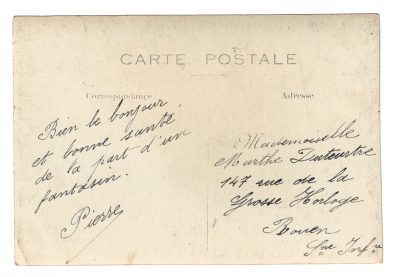 CARTE POSTALE
Correspondance
Adresse
Bien le bonjour
et bonne santé
de la part d'un
fantasin.
Pierre
Mademoiselle
Marthe Duteurtre
147 rue de la
Grosse Horloge
Rouen
Sne Infre